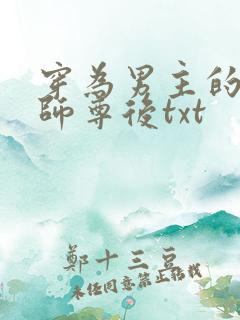 穿為男主的
師尊後txt
鄭十三豆
未任同意禁止轉載